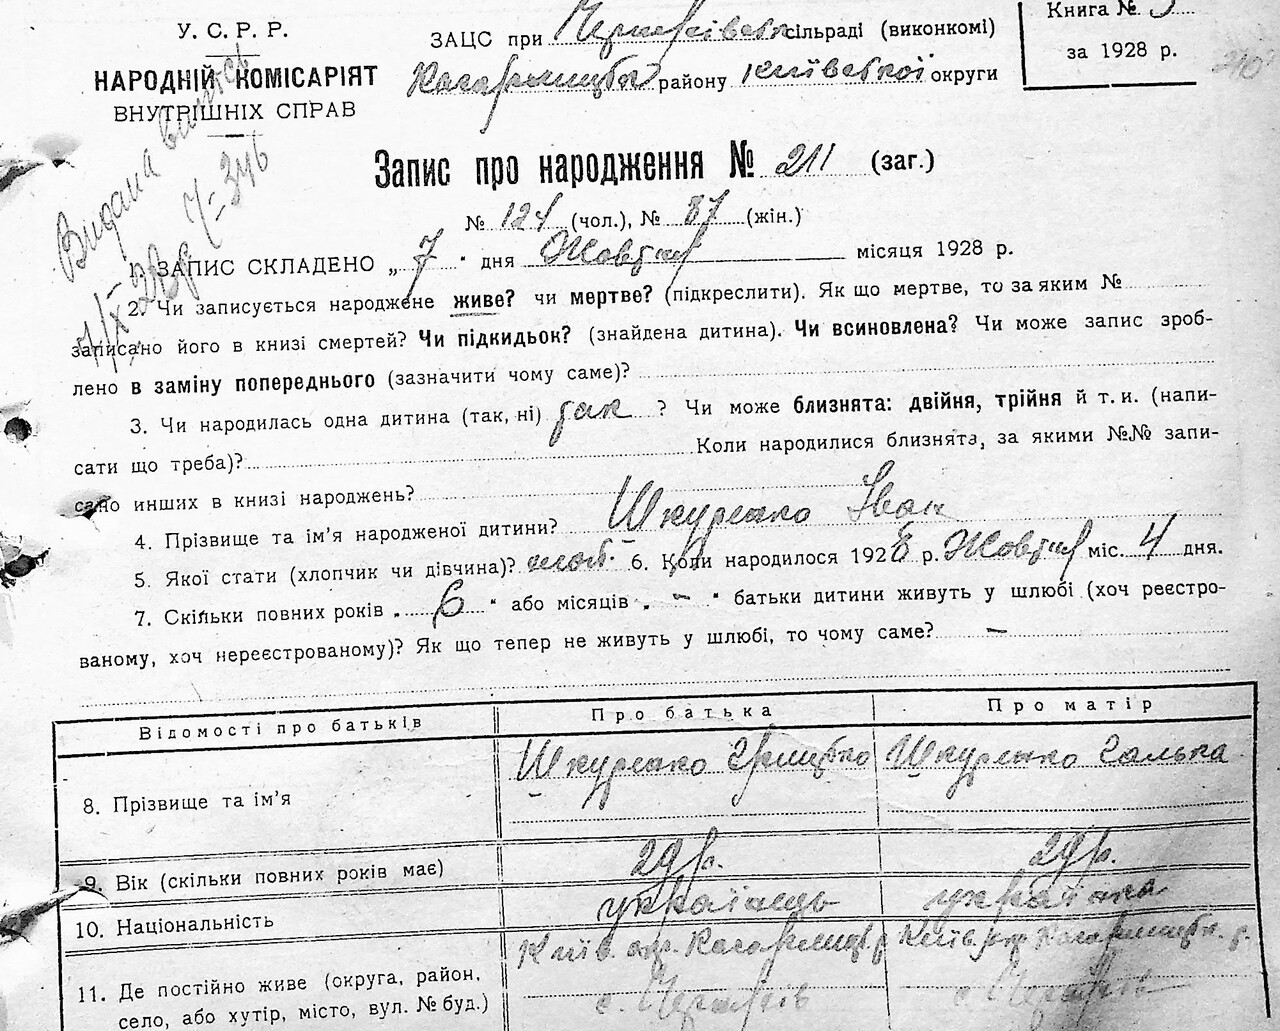 У. С. Р. Р.
НАРОДНІЙ КОМІСАРІЯТ
ВНУТРІШНІХ СПРАВ
ЗАЦС при сільраді (виконкомі)
району Київської округи
Книга №
за 1928 р.
Видана
Запис про народження № 211 (заг.)
№ 124 (чол.), № 87 (жін.)
1. ЗАПИС СКЛАДЕНО „ 7 " дня Жовтня місяця 1928 р.
2. Чи записується народжене живе? чи мертве? (підкреслити). Як що мертве, то за яким №
записано його в книзі смертей? Чи підкидьок? (знайдена дитина). Чи всиновлена? Чи може запис зроб-
лено в заміну попереднього (зазначити чому саме)?
3. Чи народилась одна дитина (так, ні) так ? Чи може близнята: двійня, трійня й т. и. (напи-
сати що треба)? Коли народилися близнята, за якими №№ запи-
сано инших в книзі народжень?
4. Прізвище та ім'я народженої дитини? Шкуренко Іван
5. Якої стати (хлопчик чи дівчина)? 6. Коли народилося 1928 р. Жовтня міс. 4 дня.
7. Скільки повних років „ 6 " або місяців „ - " батьки дитини живуть у шлюбі (хоч реєстро-
ваному, хоч нереєстрованому)? Як що тепер не живуть у шлюбі, то чому саме? -
Відомості про батьків Про батька Про матір
8. Прізвище та ім'я Шкуренко Грицько Шкуренко Галька
9. Вік (скільки повних років має) 29 р. 29 р.
10. Національність українець українка
11. Де постійно живе (округа, район,
село, або хутір, місто, вул. № буд.)
Київ. окр. Київ. окр.
с. с.